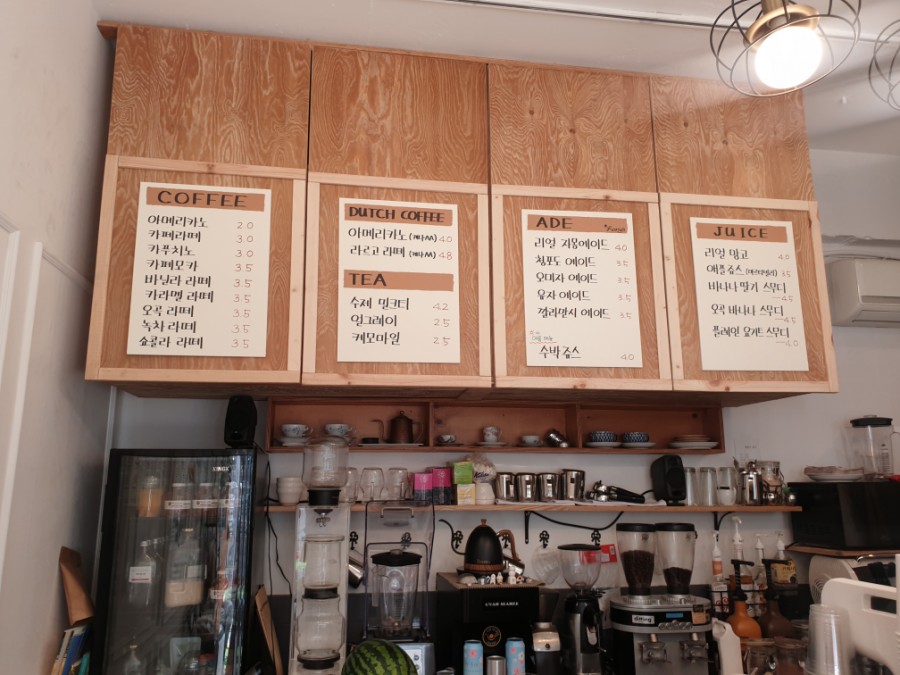 COFFEE
아메리카노 2.0
카페라떼 3.0
카푸치노 3.0
카페모카 3.5
바닐라 라떼 3.5
카라멜 라떼 3.5
오곡 라떼 3.5
녹차 라떼 3.5
쇼콜라 라떼 3.5
DUTCH COFFEE
아메리카노 4.0
라르고 라떼 4.8
TEA
수제 밀크티 4.2
얼그레이 2.5
캐모마일 2.5
ADE
리얼 자몽에이드 4.0
청포도 에이드 3.5
오미자 에이드 3.5
유자 에이드 3.5
깔라만시 에이드 3.5
수박쥬스 4.0
JUICE
리얼 망고 4.0
애플쥬스 3.5
바나나 딸기 스무디
4.5
오곡 바나나 스무디
4.5
플레인 요거트 스무디
4.0